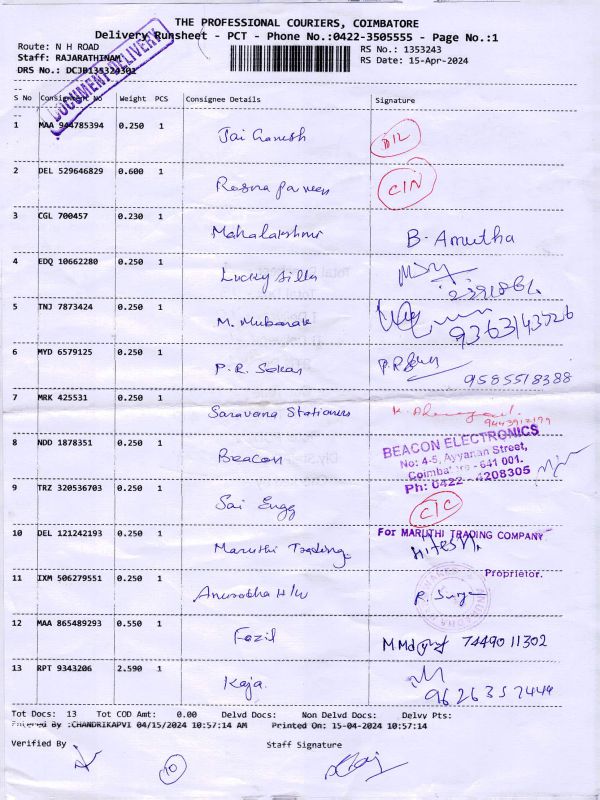 THE PROFESSIONAL COURIERS, COIMBATORE
Delivery Runsheet - PCT - Phone No.:0422-3505555 - Page No.:1
Route: N H ROAD
RS No.: 1353243
Staff: RAJARATHINAM
RS Date: 15-Apr-2024
DRS No.: DCJB135324301
DOCUMENT DELIVERY
S No Consignment No Weight PCS Consignee Details Signature
1 MAA 944785394 0.250 1 Jai Ganesh D/L
2 DEL 529646829 0.600 1 Rosna parveen C/N
3 CGL 700457 0.230 1 Mahalakshmi B. Amutha
4 EDQ 10662280 0.250 1 Lucky silks
5 TNJ 7873424 0.250 1 M. Mubarak 9363143726
6 MYD 6579125 0.250 1 P.R. Sekar
9585518388
7 MRK 425531 0.250 1 Saravana Stationers
8 NDD 1878351 0.250 1 Beacon
BEACON ELECTRONICS
No: 4-5, Ayyanan Street,
Coimbatore - 641 001.
Ph: 0422 - 4208305
9 TRZ 320536703 0.250 1 Sai Engg C/C
10 DEL 121242193 0.250 1 Maruthi Trading
For MARUTHI TRADING COMPANY
Hitesh.
Proprietor.
11 IXM 506279551 0.250 1 Anuradha H/W P. Surya
12 MAA 865489293 0.550 1 Fazil 7449011302
13 RPT 9343206 2.590 1 Kaja. 9626357444
Tot Docs: 13 Tot COD Amt: 0.00 Delvd Docs: Non Delvd Docs: Delvy Pts:
Entered By :CHANDRIKAPVI 04/15/2024 10:57:14 AM Printed On: 15-04-2024 10:57:14
Verified By Staff Signature
10